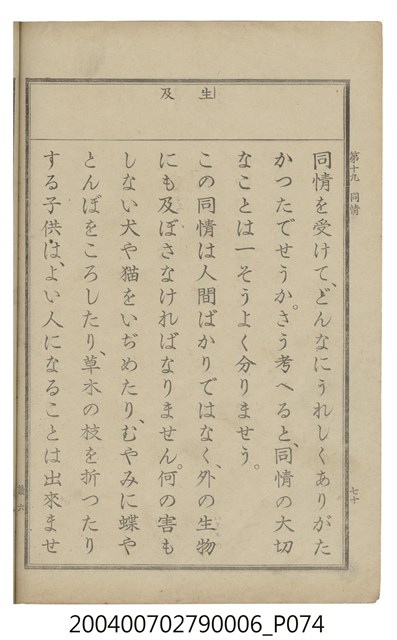 生　及
第十九　同情
七十
同情を受けて、どんなにうれしくありがた
かつたでせうか。さう考へると、同情の大切
なことは一そうよく分りませう。
この同情は人間ばかりではなく、外の生物
にも及ぼさなければなりません。何の害も
しない犬や猫をいぢめたり、むやみに蝶や
とんぼをころしたり、草木の枝を折つたり
する子供は、よい人になることは出來ませ
200400702790006_P074